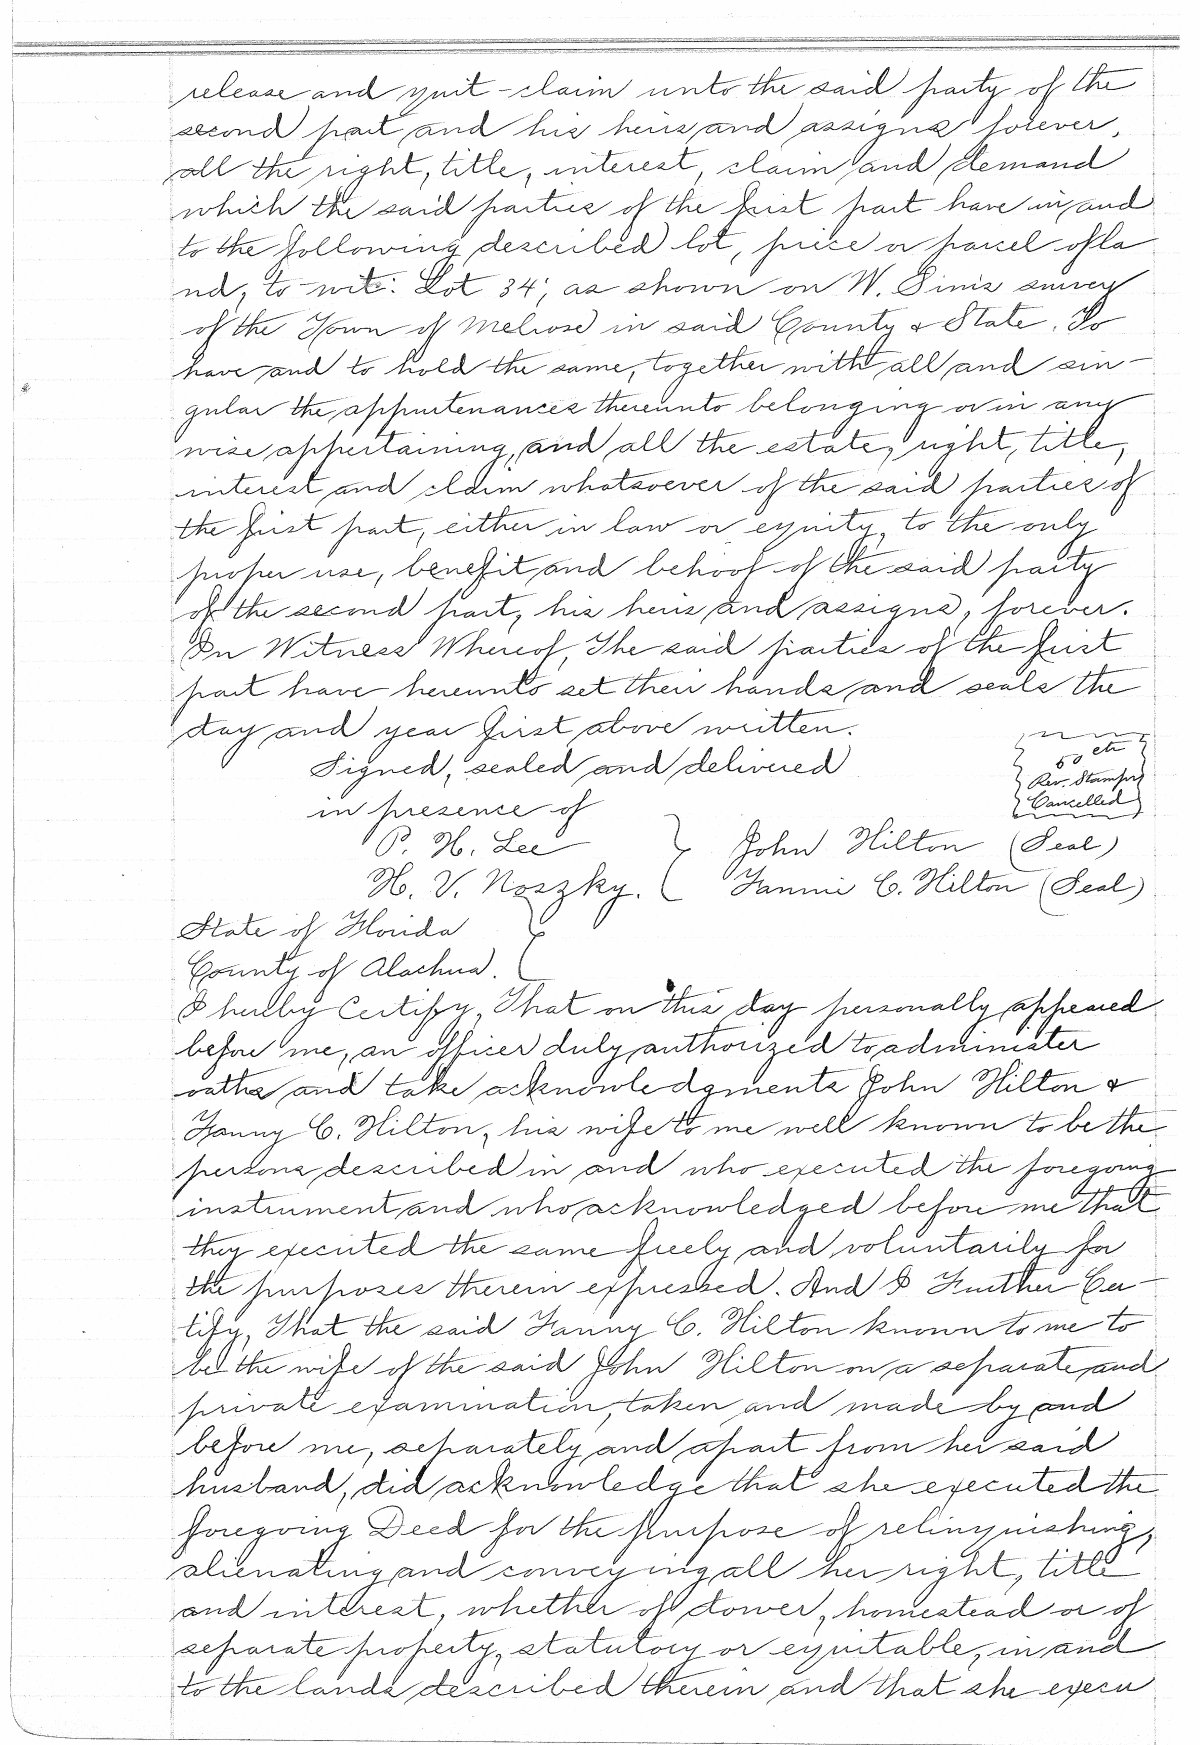 release and quit-claim unto the said party of the
second part and his heirs and assigns forever,
all the right, title, interest, claim and demand
which the said parties of the first part have in and
to the following described lot, piece or parcel of la
nd, to-wit: Lot 34, as shown on W. Sims survey
of the Town of Melrose in said County & State. To
have and to hold the same, together with all and sin-
gular the appurtenances thereunto belonging or in any
wise appertaining, and all the estate, right, title,
interest and claim whatsoever of the said parties of
the first part, either in law or equity, to the only
proper use, benefit and behoof of the said party
of the second part, his heirs and assigns, forever.
In Witness Whereof, The said parties of the first
part have hereunto set their hands and seals the
day and year first above written.
Signed, sealed and delivered
in presence of
50 cts
Rev. Stamps
Cancelled
P. H. Lee } John Hilton (Seal)
H. V. Noszky. Fannie C. Hilton (Seal)
State of Florida }
County of Alachua.
I hereby Certify, That on this day personally appeared
before me, an officer duly authorized to administer
oaths and take acknowledgments John Hilton &
Fanny C. Hilton, his wife to me well known to be the
persons described in and who executed the foregoing
instrument and who acknowledged before me that
they executed the same freely and voluntarily for
the purposes therein expressed. And I Further Cer-
tify, That the said Fanny C. Hilton known to me to
be the wife of the said John Hilton on a separate and
private examination, taken and made by and
before me, separately and apart from her said
husband, did acknowledge that she executed the
foregoing Deed for the purpose of relinquishing,
alienating and conveying all her right, title
and interest, whether of dower, homestead or of
separate property, statutory or equitable, in and
to the lands described therein and that she execu